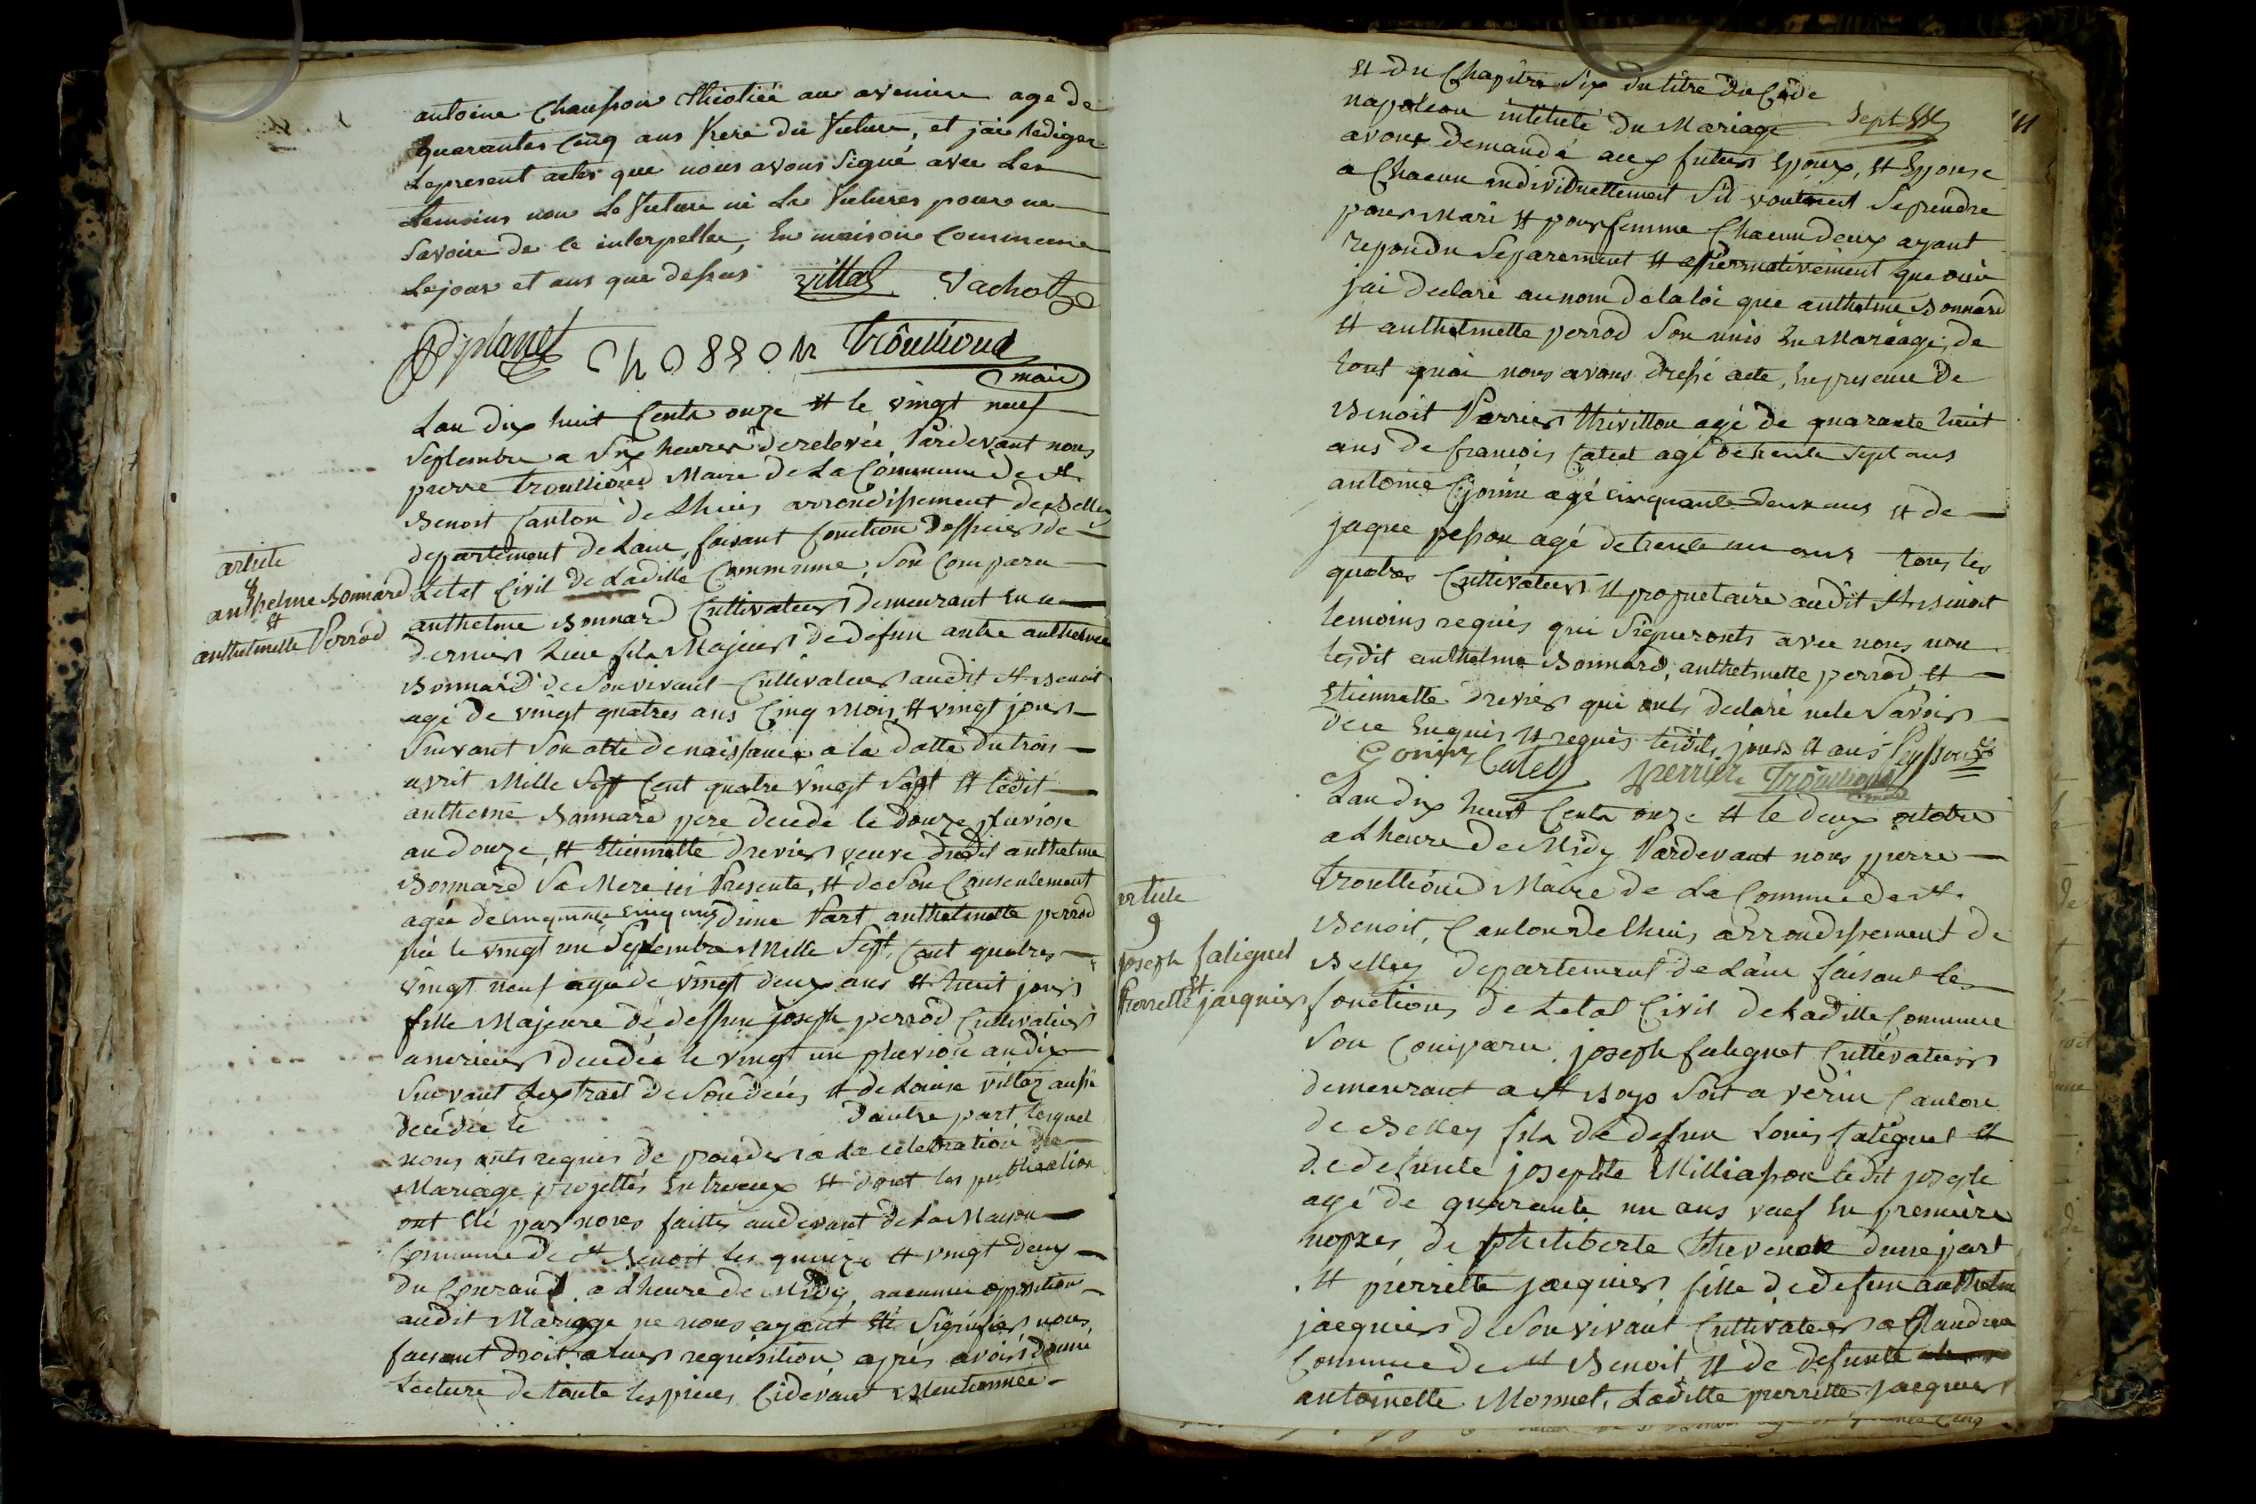 antoine Chausson Thioliée au avenier age de
quarantes Cinq ans frere du future, et jai Rediger
Lepresent actes que nous avons Signé avec Les
temoins non Le future ni La futures pour ne
Savoir de ce interpeller, En maison Commune
Lejour et ans que dessus villaz vachot
planet CHOSSON trôullioud
maire
Lan dix huit Cents onze et le vingt neuf
Septembre a Six heures derelevée Pardevant nous
pierre troullioud Maire de La Commune de st
Benoit Canton de Lhuis arrondissement de Belley
departement de Lain, faisant fonction dofficier de
Letat Civil de Ladille Commune, Son Comparu
article
8
anthelme Bonnard
et
anthelmette Perrod
anthelme Bonnard Cultivateur demeurant en ce
dernier Lieu fils Majeur de defun autre anthelme
Bonnard de Sonvivant Cultivateur audit st Benoit
agé de vingt quatres ans Cinq mois et vingt jours
Suivant Son atte denaissance a la datte du trois
avril Mille Sept Cent quatre vingt Sept et ledit
anthelme Bonnard pere decedé le douze pluviose
an douze, et Etiennette drevier veuve dudit anthelme
Bonnard Sa Mere ici Presente, et de Son Consentement
agée de cinquante cinq ans dune Part anthelmette perrod
née le vingt un Septembre Mille Sept Cent quatres
vingt neuf agée de vingt deux ans et huit jours
fille Majeure de deffun joseph perrod Cultivateur
decedée le vingt un pluviose an dix
Suivant Lextrait de Son deces et de Louise villaz aussi
decedée le daulre part lesquel
nous onts requis de proceder a La celebration du
Mariage projettés Entreeux et dont les publication
ont été par nous faittes audevant de La Maison
Commune de st Benoit les quinze et vingt deux
du Courand a Lheure de Midy, aucunne opposition
audit Mariage ne nous ayant été Signifier nous
faisant droit a Leur requisition après avoir donné
Lecture de toute les pieces Cidevant Mentionnée
et du Chapitre Six du titre du Code
napoleon intitulé du Mariage Sept
avons demandé aux futurs Epoux, et Epouse
a Chacun individuellement Sil voulaient Seprendre
pour Mari et pour femme Chacun deux ayant
repondu Separement et affirmativement que ouir
jai declaré au nom de la loi que anthelme Bonnard
et anthelmette perrod Son unis En Mariage, de
tout quoi nous avons dressé acte, Enpresence de
Benoit Perrier thivillon agé de quarante huit
ans de francois Catel agé de trente Sept ans
antoine Gonin agé cinquante deux ans et de
jaque pesson agé de trente un ans tous les
quatres Cultivateurs et propriétaire audit st Benoit
temoins requis qui Signeronts avec nous non
lesdit anthelme Bonnard, anthelmette perrod et
Etiennette drevier qui onts declaré nele Savoir
de ce Enquis et requis lesdits jours et ans Peysson
Gonin Catel perrier Troullioud
maire
Lan dix huit Cents onze et le deux octobre
a Lheure de Midy Pardevant nous pierre
troullioud Maire de La Commune de st
Benoit, Canton de lhuis arrondissement de
article
9
joseph falignet
et
Pierrette jacquier
Belley departement de Lain faisant les
fonctions de Letat Civil de Ladille Commune
Son Comparu joseph falignet Cultivateur
demeurant a st Boys Soit a verin Canton
de Belley fils de defun Louis falignet et
de defunte josephte Milliasson ledit joseph
agé de quarante un ans veuf En premiere
nopxes de philiberte thevenon dune part
et pierrette jacquier fille de defun anthelme
jacquier de Son vivant Cultivateur a Glandieu
Commune de st Benoit et de defunte
antoinette Monnet, Ladille pierrette jacquier